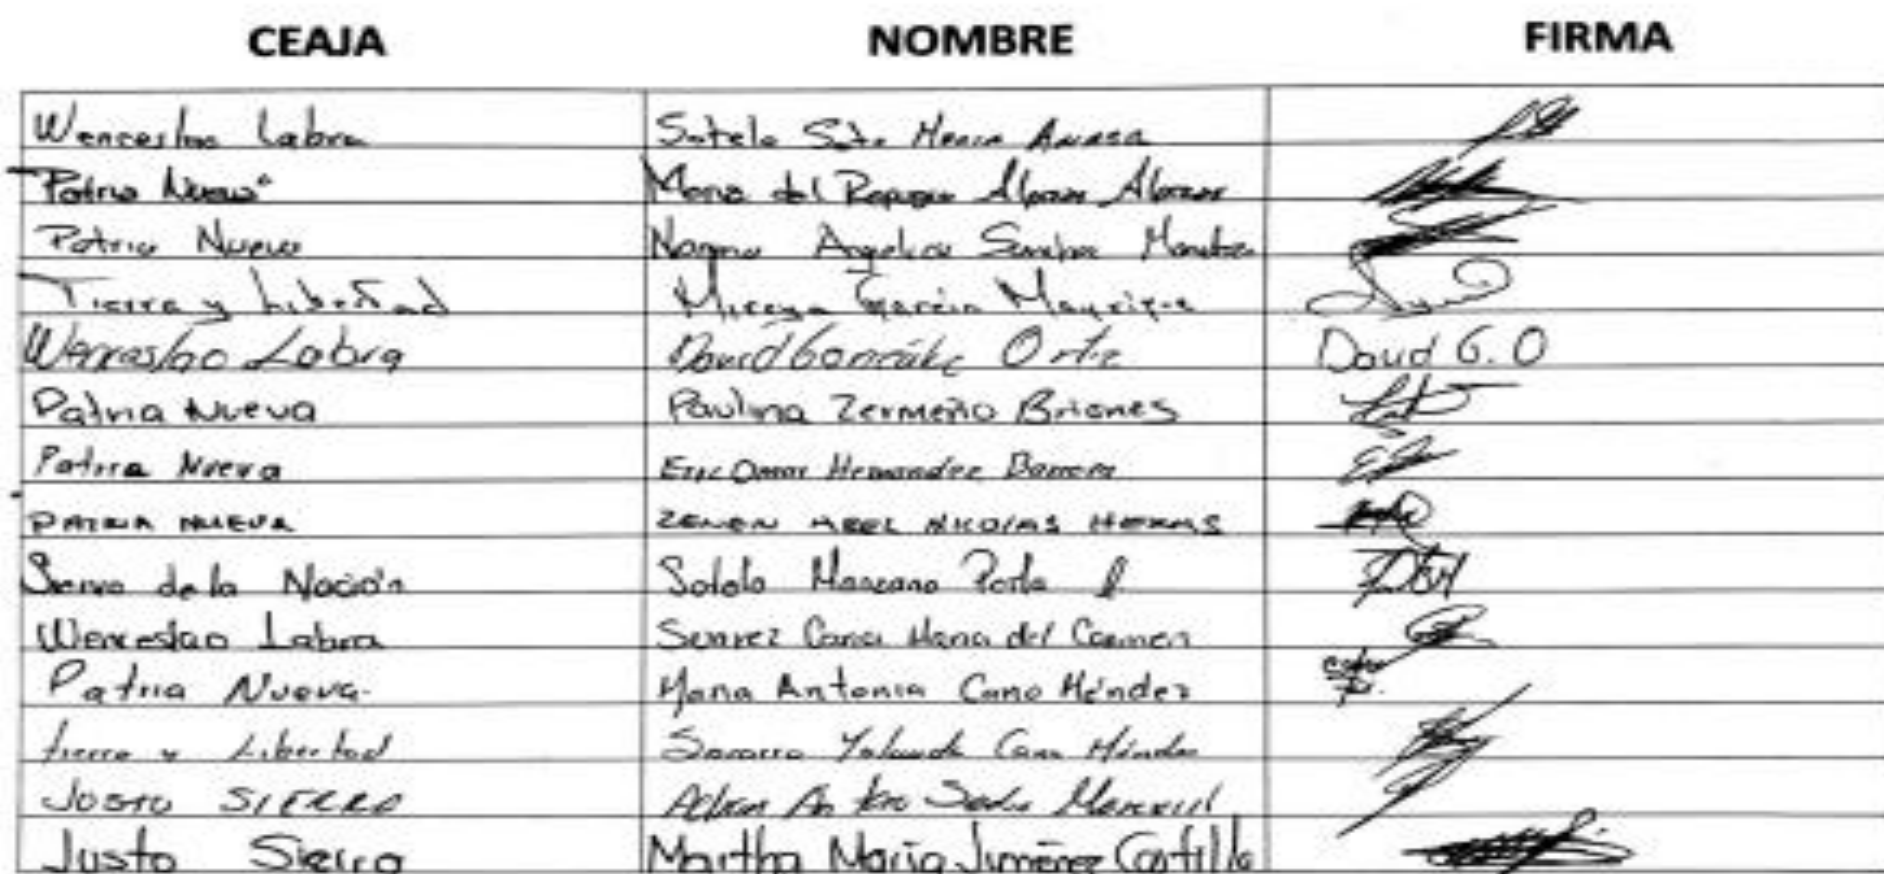 CEAJA NOMBRE FIRMA
Wenceslao Labra Sotelo Soto María
"Patria Nueva" Maria del Alonso Alonso
Patria Nueva Norma Angelica Sanchez
Tierra y Libertad Mireya García Manrique
Wenceslao Labra David González Ortiz David G. O
Patria Nueva Paulina Zermeño Briones
Patria Nueva Eric Omar Hernandez Barrera
PATRIA NUEVA ZENON ABEL NICOLAS
de la Nación Sotelo Manzano Perla
Wenceslao Labra Suarez Maria del Carmen
Patria Nueva Maria Antonia Cano Méndez
tierra y Libertad Socorro Yolanda Cano Méndez
JUSTO SIERRA
Justo Sierra Martha María Jiménez Castillo